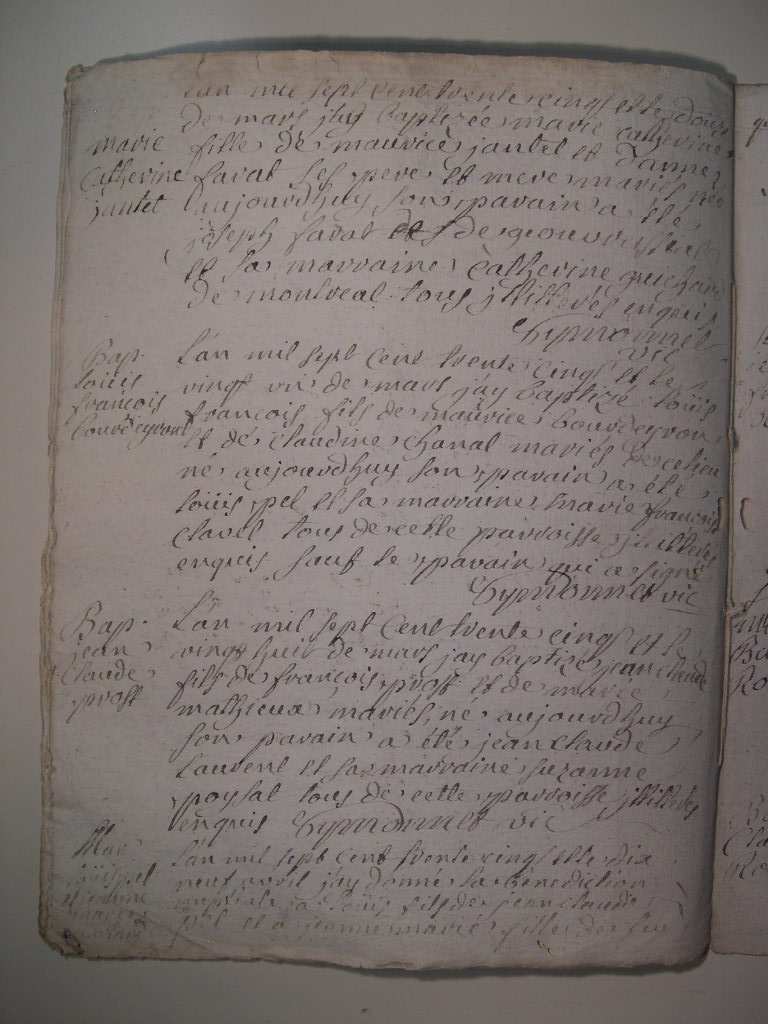 L'an mil sept cent trente cinq et le douze
de mars j'ay baptizée marie catherine
marie catherine jantet
fille de maurice jantet et d'anne
favat ses pere et mere mariés née
aujourdhuy son parain a été
joseph favat de
et sa marraine catherine guichard
de montreal tous jllitterés enquis
Symonnet vic
Bap. loüis françois bourdeyron
L'an mil sept cent trente cinq et le
vingt un de mars j'ay baptizé loüis
françois fils de maurice bourdeyron
et de claudine chanal mariés
né aujourdhuy son parain a été
loüis pel et sa marraine marie françoise
clavel tous de cette parroisse jllitterés
enquis sauf le parain qui a signé
Symonnet vic
Bap. jean claude prost
L'an mil sept cent trente cinq et le
vingt huit de mars j'ay baptizé jean claude
fils de françois prost et de marie
mathieux mariés, né aujourdhuy
son parain a été jean claude
laurent et sa marraine suzanne
poysat tous de cette parroisse jllitterés
enquis Symonnet vic
Mar. loüis pel et jeanne marie
L'an mil sept cent trente cinq et le dix
neuf avril j'ay donné la bénédiction
nuptiale à loüis fils de jean claude
pel et a jeanne marie fille de feu